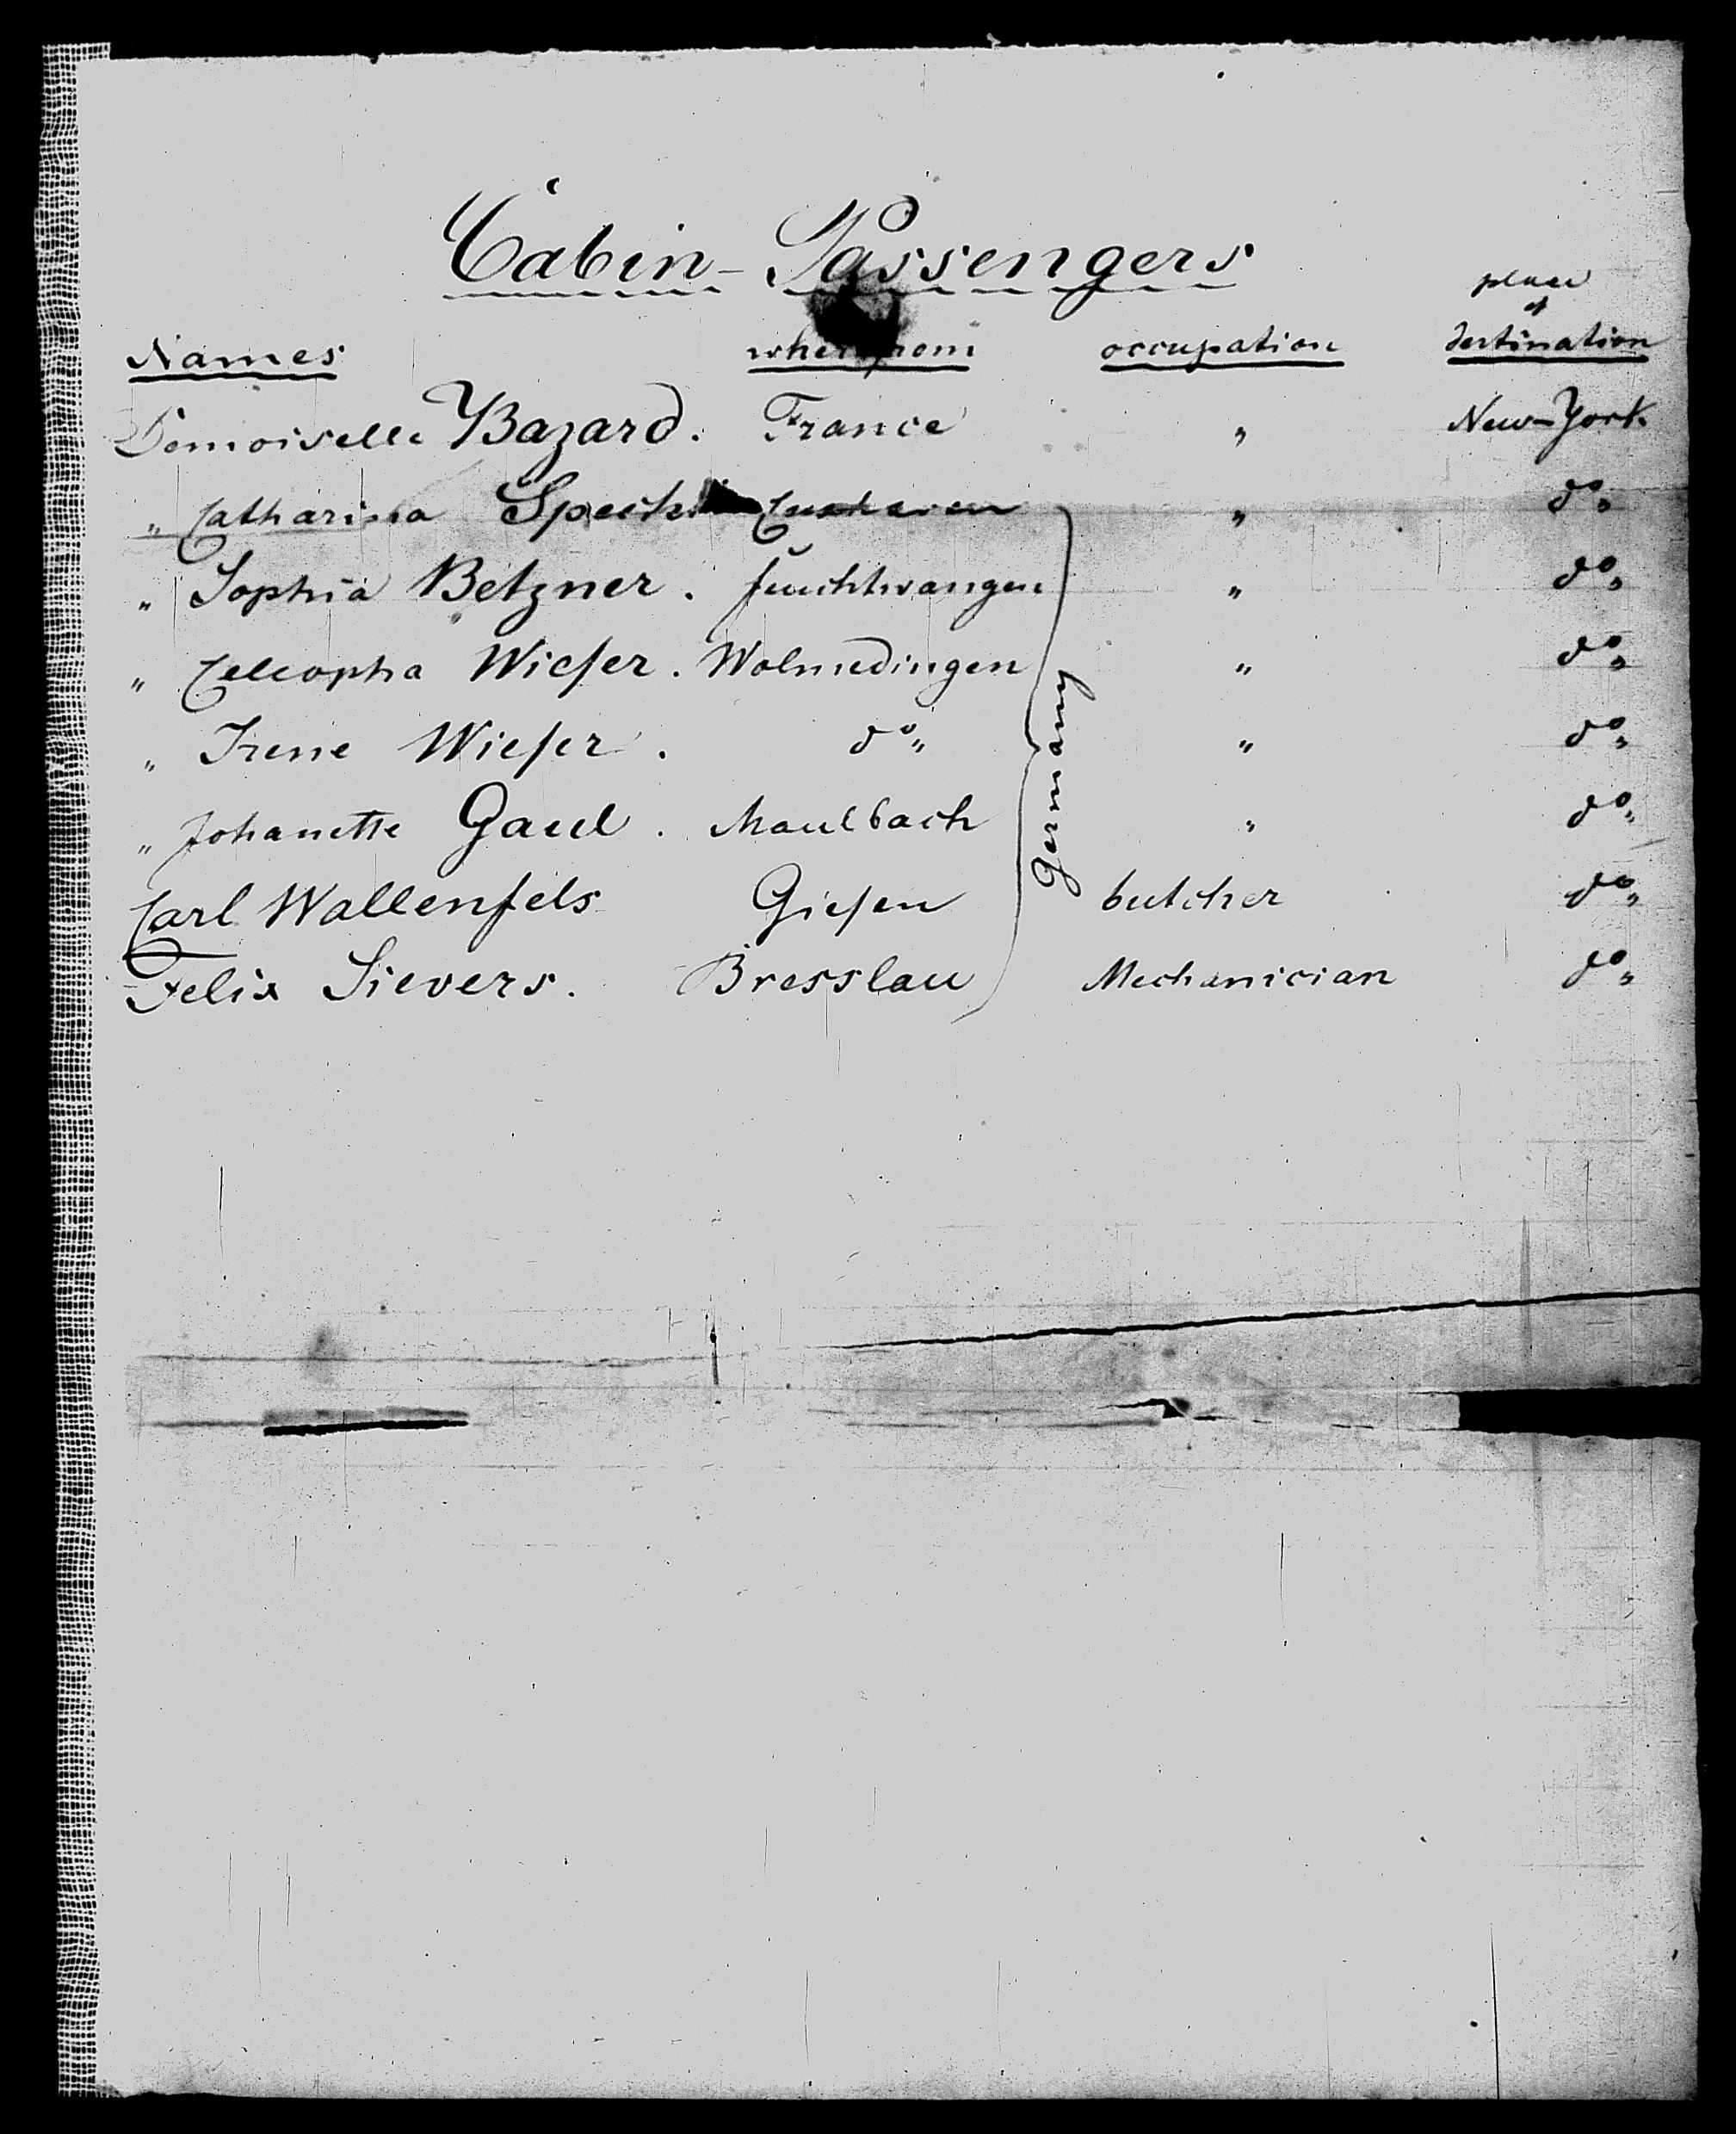 Cabin-Passengers
Names wherefrom occupation place of destination
Demoiselle Bazard. France " New-York
" Catharina Specht Cuxhaven " do"
" Sophia Betzner. feuchtwangen " do"
" Celeopha Wieser. Wolmedingen " do"
" Irene Wieser. do" " do"
" Johanette Gaul. Maulbach " do"
Carl Wallenfels Giesen butcher do"
Felix Sievers. Bresslau Mechanician do"
germany